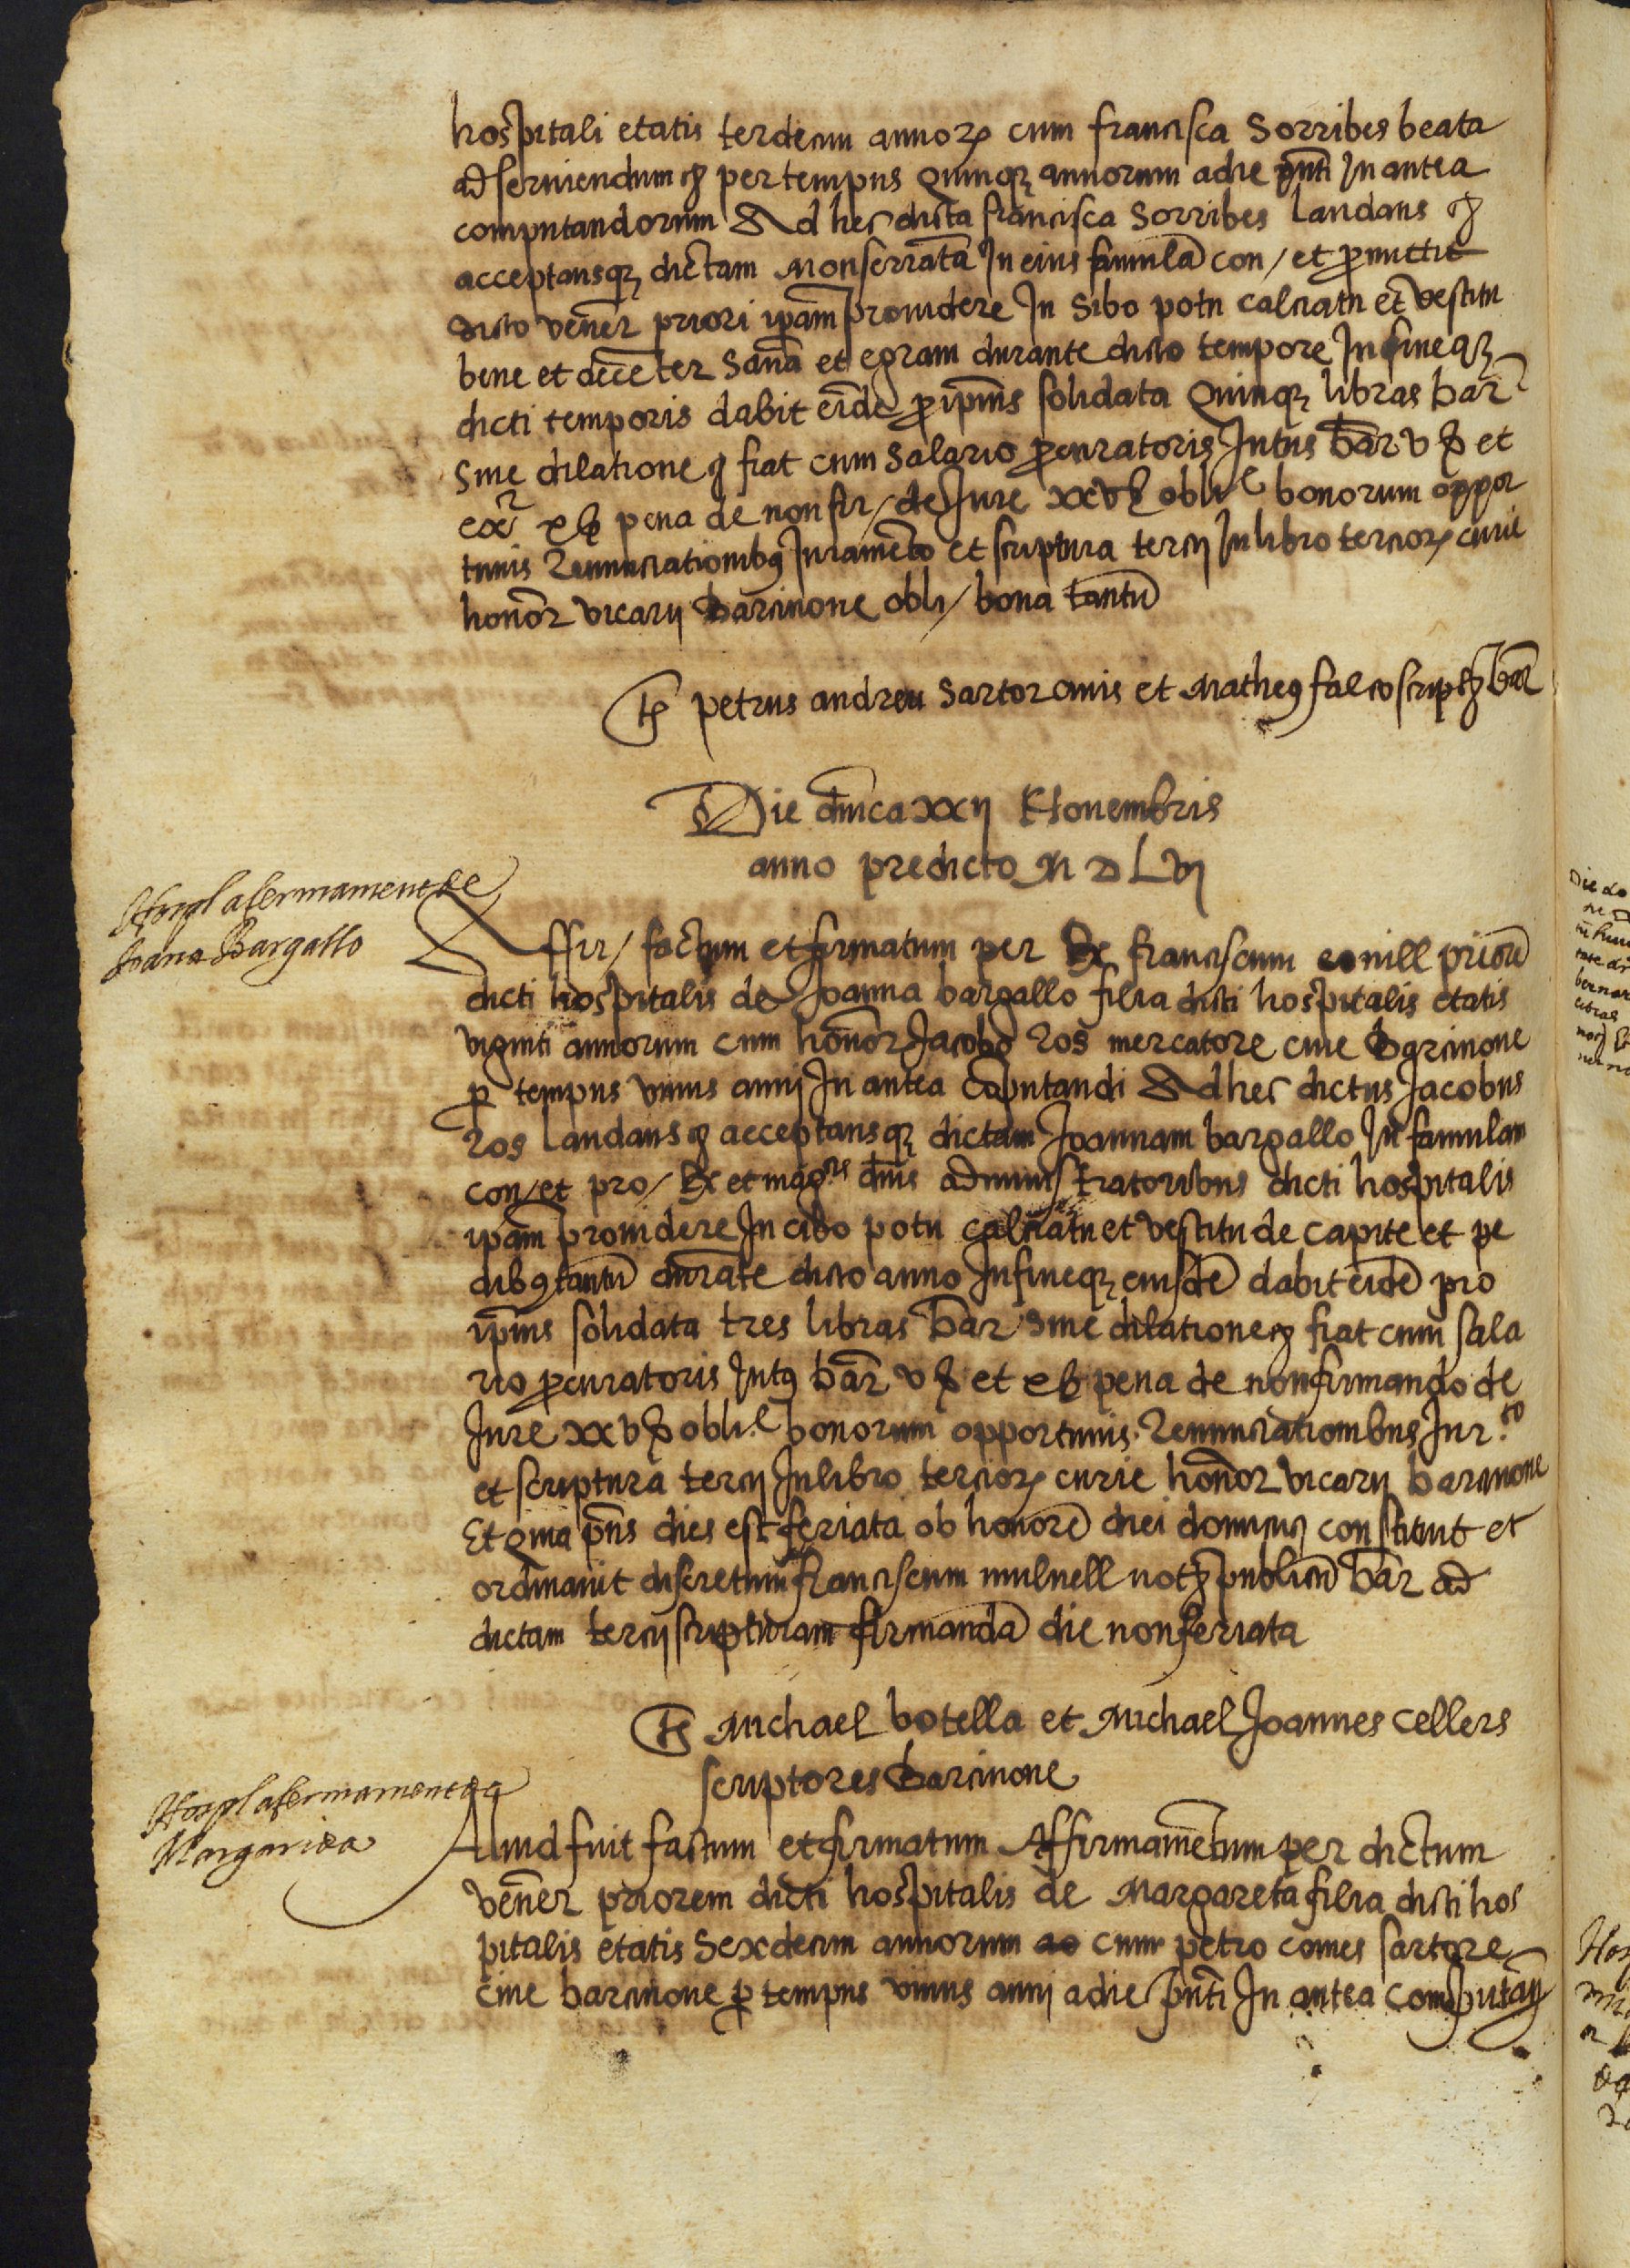 hospitali etatis terdecim annoꝝ cum francisca Sorribes beata
ad serviendum &c per tempus quinqȝ annorum a die pnti In antea
computandorum Ad hec dicta francisca Sorribes laudans &c
acceptansqȝ dictam Monserratā In eius famulā con / et ꝓmittit
dicto veneꝛ priori ipam providere In Sibo potu calciatu et vestitu
bene et decenter Sanā et egram durante dicto tempore In fineqȝ
dicti temporis dabit eidē ꝓ ipius solidata quinqȝ libras bar
sine dilatione &c fiat cum Salario ꝓcuratoris Intus bar v ß et
exᵃ x ß pena de non fir / de Jure xxv ß obliᵉ bonorum oppor
tunis Renunciationibꝰ Juramēto et scriptura tercij In libro tercioꝝ curie
honor vicarij Barcinone obli / bona tantū
Tꝭ petrus andreu Sartor civis et Matheꝰ falco script bar
Die dnica xxij Novembris
anno predicto M D Lvj
Hospl afermament de
Joana Bargallo
Affir / factum et firmatum per Rx franciscum conill priorē
dicti hospitalis de Joanna bargallo filia dicti hospitalis etatis
viginti annorum cum honor Jacobo Ros mercatore cive Barcinone
ꝑ tempus unius anni In antea cōputandi Ad hec dictus Jacobus
Ros laudans &c acceptansqȝ dictam Joannam bargallo In famulam
con / et pro / Rx et magᶜⁱˢ dnis administratoribus dicti hospitalis
ipam providere In cibo potu calciatu et vestitu de capite et pe
dibꝰ tantū durāte dicto anno In fineqȝ eiusdē dabit eidē pro
ipius solidata tres libras bar sine dilatione &c fiat cum sala
rio ꝓcuratoris Intꝰ bar v ß et x ß pena de non firmando de
Jure xxv ß obliᵉ bonorum opportunis Renunciationibus Jurᵗᵒ
et scriptura tercij In libro tercioꝝ curie honor vicarij barcinone
Et quia pns dies est feriata ob honorē diei dominice constituit et
ordinavit discretum franciscum mulnell not publicū bar ad
dictam tercij scripturam firmandā die non feriata
Tꝭ Michael botella et Michael Joannes cellers
scriptores Barcinone
Hospl afermament de
Margarida
Aliud fuit factum et firmatum Affirmamētum per dictum
veneꝛ priorem dicti hospitalis de Margareta filia dicti hos
pitalis etatis Sexdecim annorum cum petro comes sartore
cive barcinone ꝑ tempus unius anni a die pnti In antea computādi